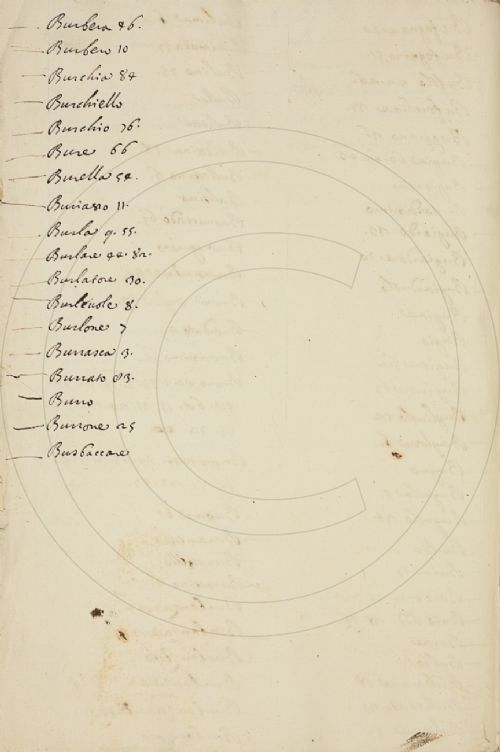 Burbera 46.
Burbero 10
Burchia 84
Burchiello
Burchio 76.
Bure 66
Burella 54.
Buriasso 11.
Burla 9. 55.
Burlare 44. 82.
Burlatore 30.
Burlevole 8.
Burlone 7
Burrasca 3.
Burrato 83.
Burro
Burrone 25
Busbaccare